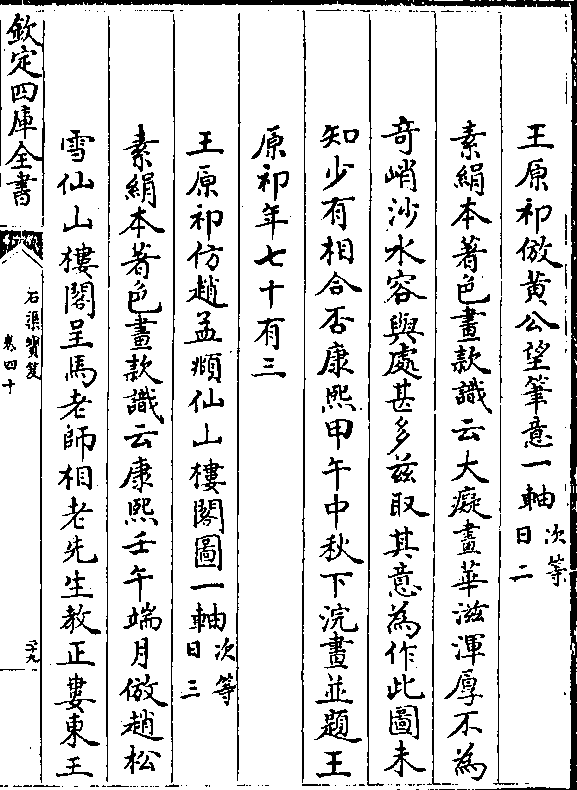 王原祁倣黄公望筆意一軸次等日二
素絹本著色畫款識云大癡畫華滋渾厚不為
竒峭沙水容與處甚多兹取其意為作此圖未
知少有相合否康熙甲午中秋下浣畫並題王
原祁年七十有三
王原祁仿趙孟頫仙山樓閣圖一軸次等日三
素絹本著色畫款識云康熙壬午端月倣趙松
雪仙山樓閣呈馬老師相老先生教正婁東王
欽定四庫全書
石渠寳笈
卷四十
二十九